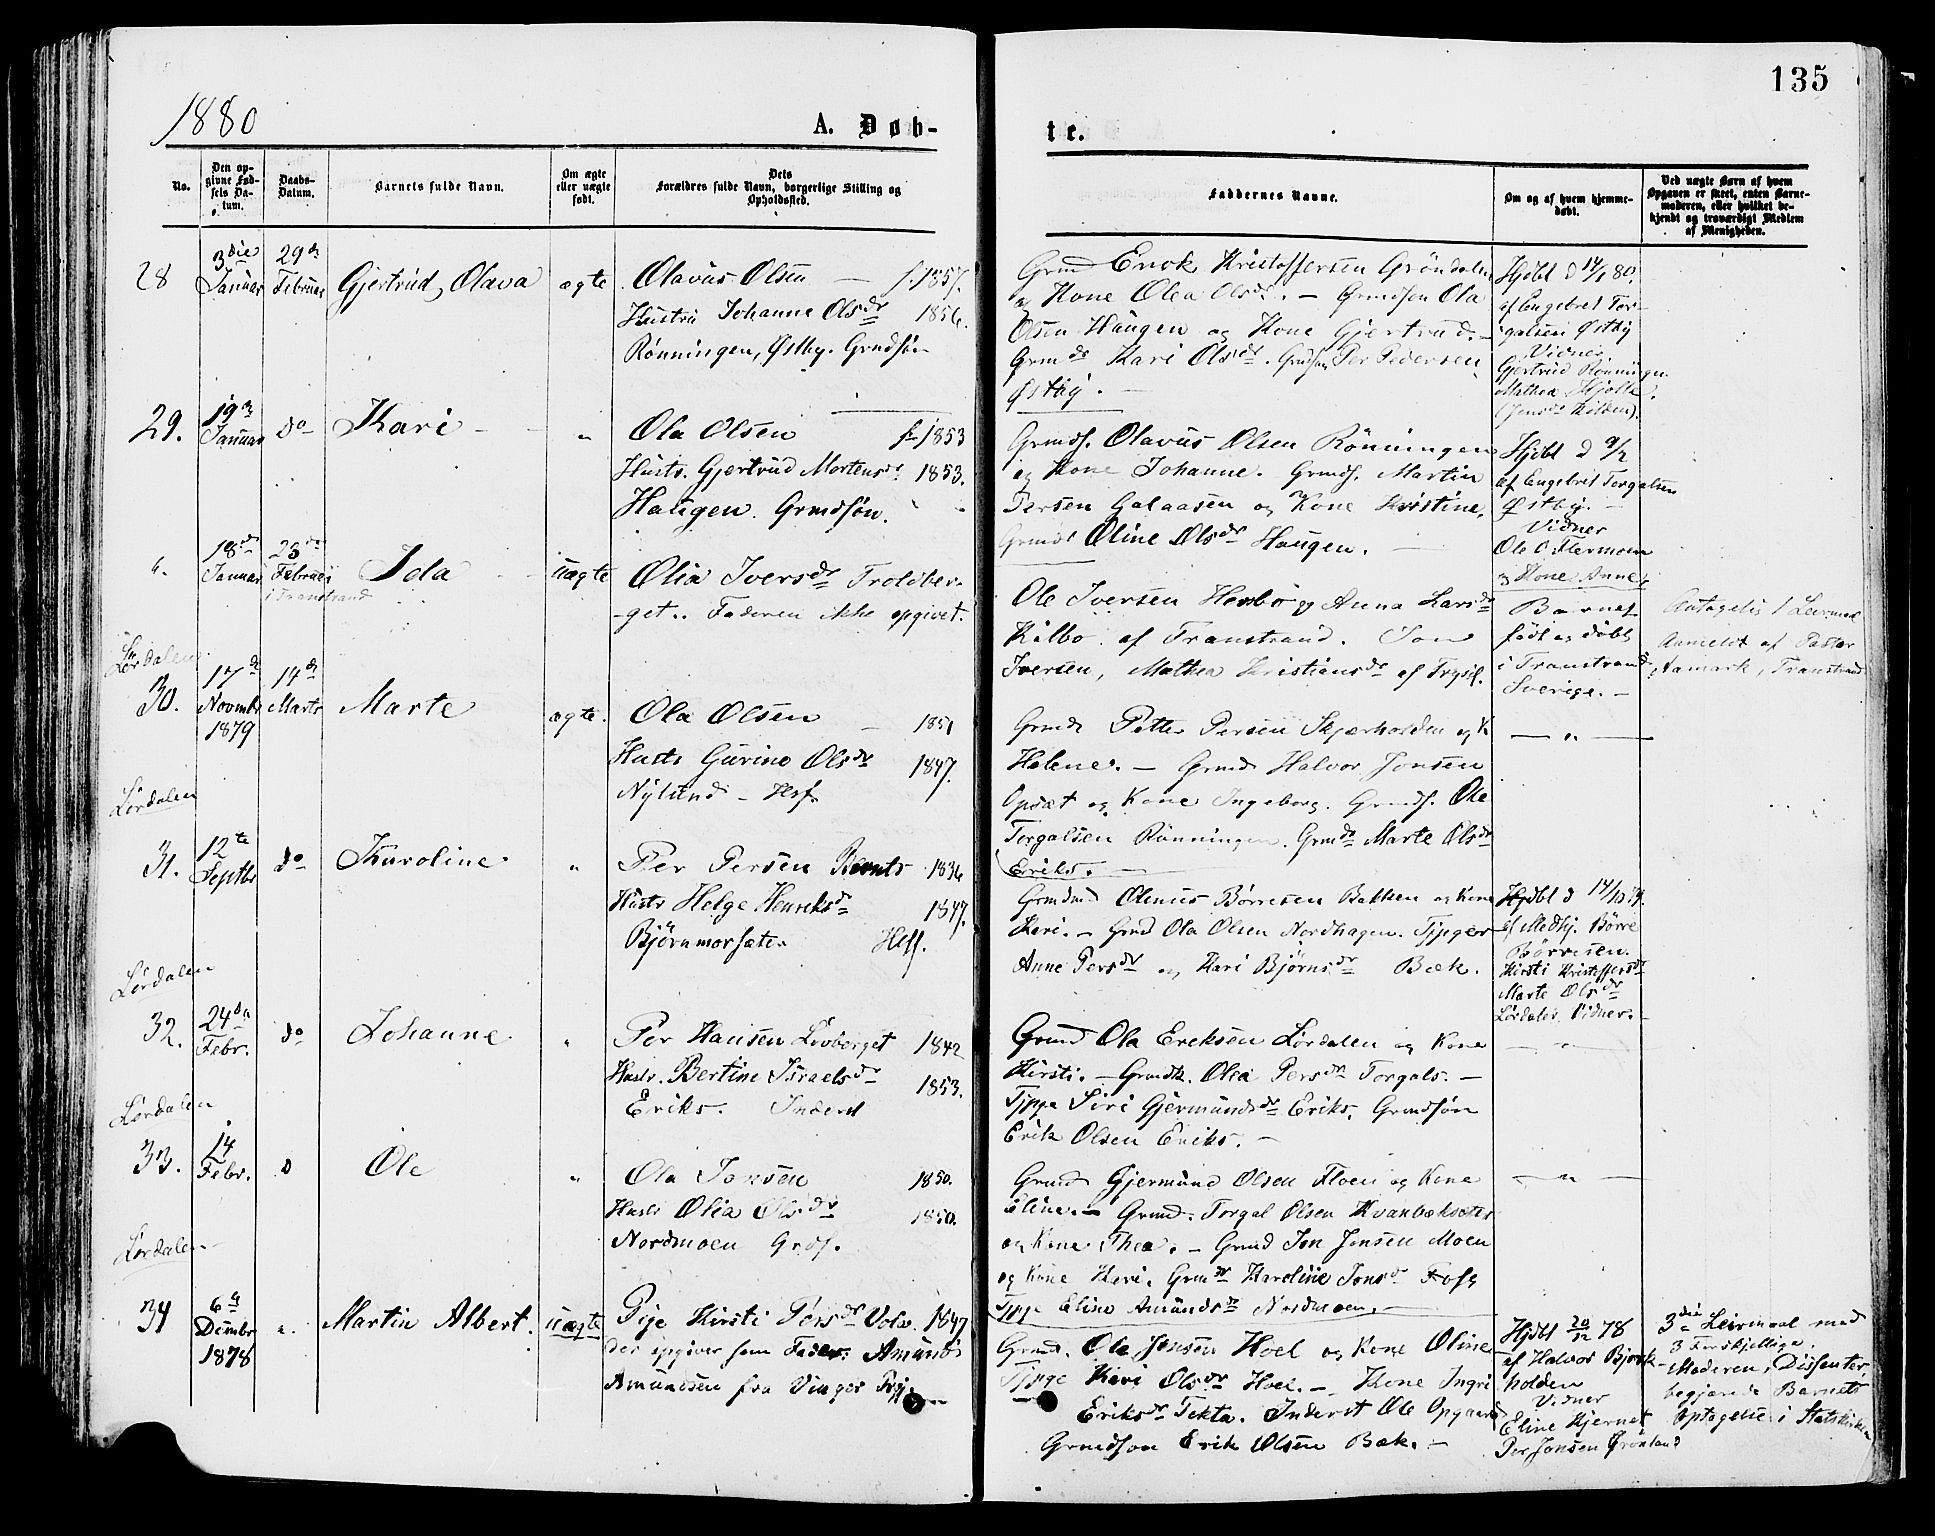 135
1880
A. Døb-
te.
No.
Den op-
givne Fød-
sels Da-
tum.
Daabs-
Datum.
Barnets fulde Navn.
Om ægte
eller uægte
født.
Dets
Forældres fulde Navn, borgerlige Stilling og
Opholdssted.
Faddernes Navne.
Om og af hvem hjemme-
døbt.
Ved uægte Børn af hvem
Opgaven er skeet, enten Barne-
moderen, eller hvilket be-
kjendt og troværdigt Medlem
af Menigheden.
28
3die
Januar
29de
Februar
Gjertrud, Olava
ægte
Olavus Olsen — f. 1857.
Hustru Johanne Olsdr 1856.
Rønningen, Østby. Grndsøn
Grmd Erick Kristoffersen Grøndalen
og Kone Olea Olsdr. — Grmdsøn Ola
Olsen Haugen og Kone Gjertrud. —
Grmdr Kari Olsdr. Grmdsøn Per Pedersen
Østby. —
Hjdbt d 14/1 80.
af Engebret Tor-
galsen Østby
Vidner
Gjertrud Rønningen
Mathea
29.
19de
Januar
do
Kari
"
Ola Olsen f. 1853
Husts. Gjertrud Mortensdr 1853.
Haugen. Grmdsøn.
Grmds. Olavus Olsen Rønningen
og Kone Johanne. Grmds. Martin
Persen Galaasen og Kone Kristine.
Grmdr Oline Olsdr Haugen. —
Hjdbt d 9/2
af Engebret Torgalsen
Østby. —
Vidner
Ole O. Flermoen
og Kone Anne
".
18de
Januar
23de
Februar
i Transtrand
Ida
uægte
Olia Iversdr Troldber-
get. Faderen ikke opgivet.
Ole Iversen Henbo og Anna Larsdr
Kilbo af Transtrand. Jon
Iversen, Mathea Kristiansdr af Trysil.
Barnet
født og døbt
i Transtrand
Sverige. —
Antagelig 1 Leiermaal
Anmeldt af Pastor
Aamark, Transtrand
Lørdalen
30.
17de
Novmbr
1879
14de
Marts
Marte
ægte.
Ola Olsen — 1851
Husts Gurine Olsdr 1847.
Nylund — Hsf.
Grmd Petter Persen Skjærholden og K
Helene. — Grmd Halvor Jonsen
Opsæt og Kone Ingeborg. Grmds. Ole
Torgalsen Rønningen. Grmdr Marte Olsdr
Eriks. —
— " —
Lørdalen
31.
12te
Septbr
do
Karoline.
"
Per Persen Bernts 1836
Husts Helge Henriksdr 1847.
Bjørnmorsæte. Hsf.
Grmdmd Olenus Børresen Bakken og Kone
Kari. — Grmd Ola Olsen Nordhagen. Tjpger
Anne Persdr og Kari Bjørnsdr Bæk.
Hjdbt d 14/10 79.
af Medhj. Børre
Børresen.
Kirsti Kristoffersdr
Marte Olsdr
Lørdalen Vidner. —
Lørdalen
32.
24de
Febr.
do
Johanne
"
Per Hansen Løvberget 1842
Hustr. Bertine Israelsdr 1853.
Eriks. Inderst
Grmd Ola Ereksen Lørdalen og Kone
Kirsti. — Grmdk. Olea Persdr Torgals. —
Tjpge Siri Gjermundsdr Eriks. Grmdsøn
Erik Olsen Eriks. —
— " —
Lørdalen
33.
14
Febr.
d
Ole
"
Ola Jonsen 1850.
Hustr Olia Olsdr 1850.
Nordmoen Grds.
Grmd Gjermund Olsen Floen og Kone
Eline. — Grmd. Torgal Olsen Kvanbæksæter
og Kone Thea. — Grmd Jon Jonsen Moen
og Kone Kari. Grmdr Karoline Jonsdr Fos,
Tjpge Eline Amundsdr Nordmoen. —
— " —
Lørdalen
34
6te
Dcmbr
1878
".
Martin Albert.
uægte
Pige Kirsti Persdr Vola. 1847
der opgiver som Fader: Amund
Amundsen fra Vinger Prgj.
Grmd. Ole Jonsen Hoel og Kone Oline
Tjpge Kari Olsdr Hoel. — Kone Ingri
Eriksdr Tekta. Inderst Ole Opgaard
Grmdsøn Erik Olsen Bæk. —
Hjdbt 20/12 78
af Halvor Bjørk-
holden
Vidner
Eline Kjernet
Per Jonsen Grønland
3die Leiermaal med
3 Forskjellige.
Moderen, Dissenter,
begjærede Barnets
Optagelse i Statskirken